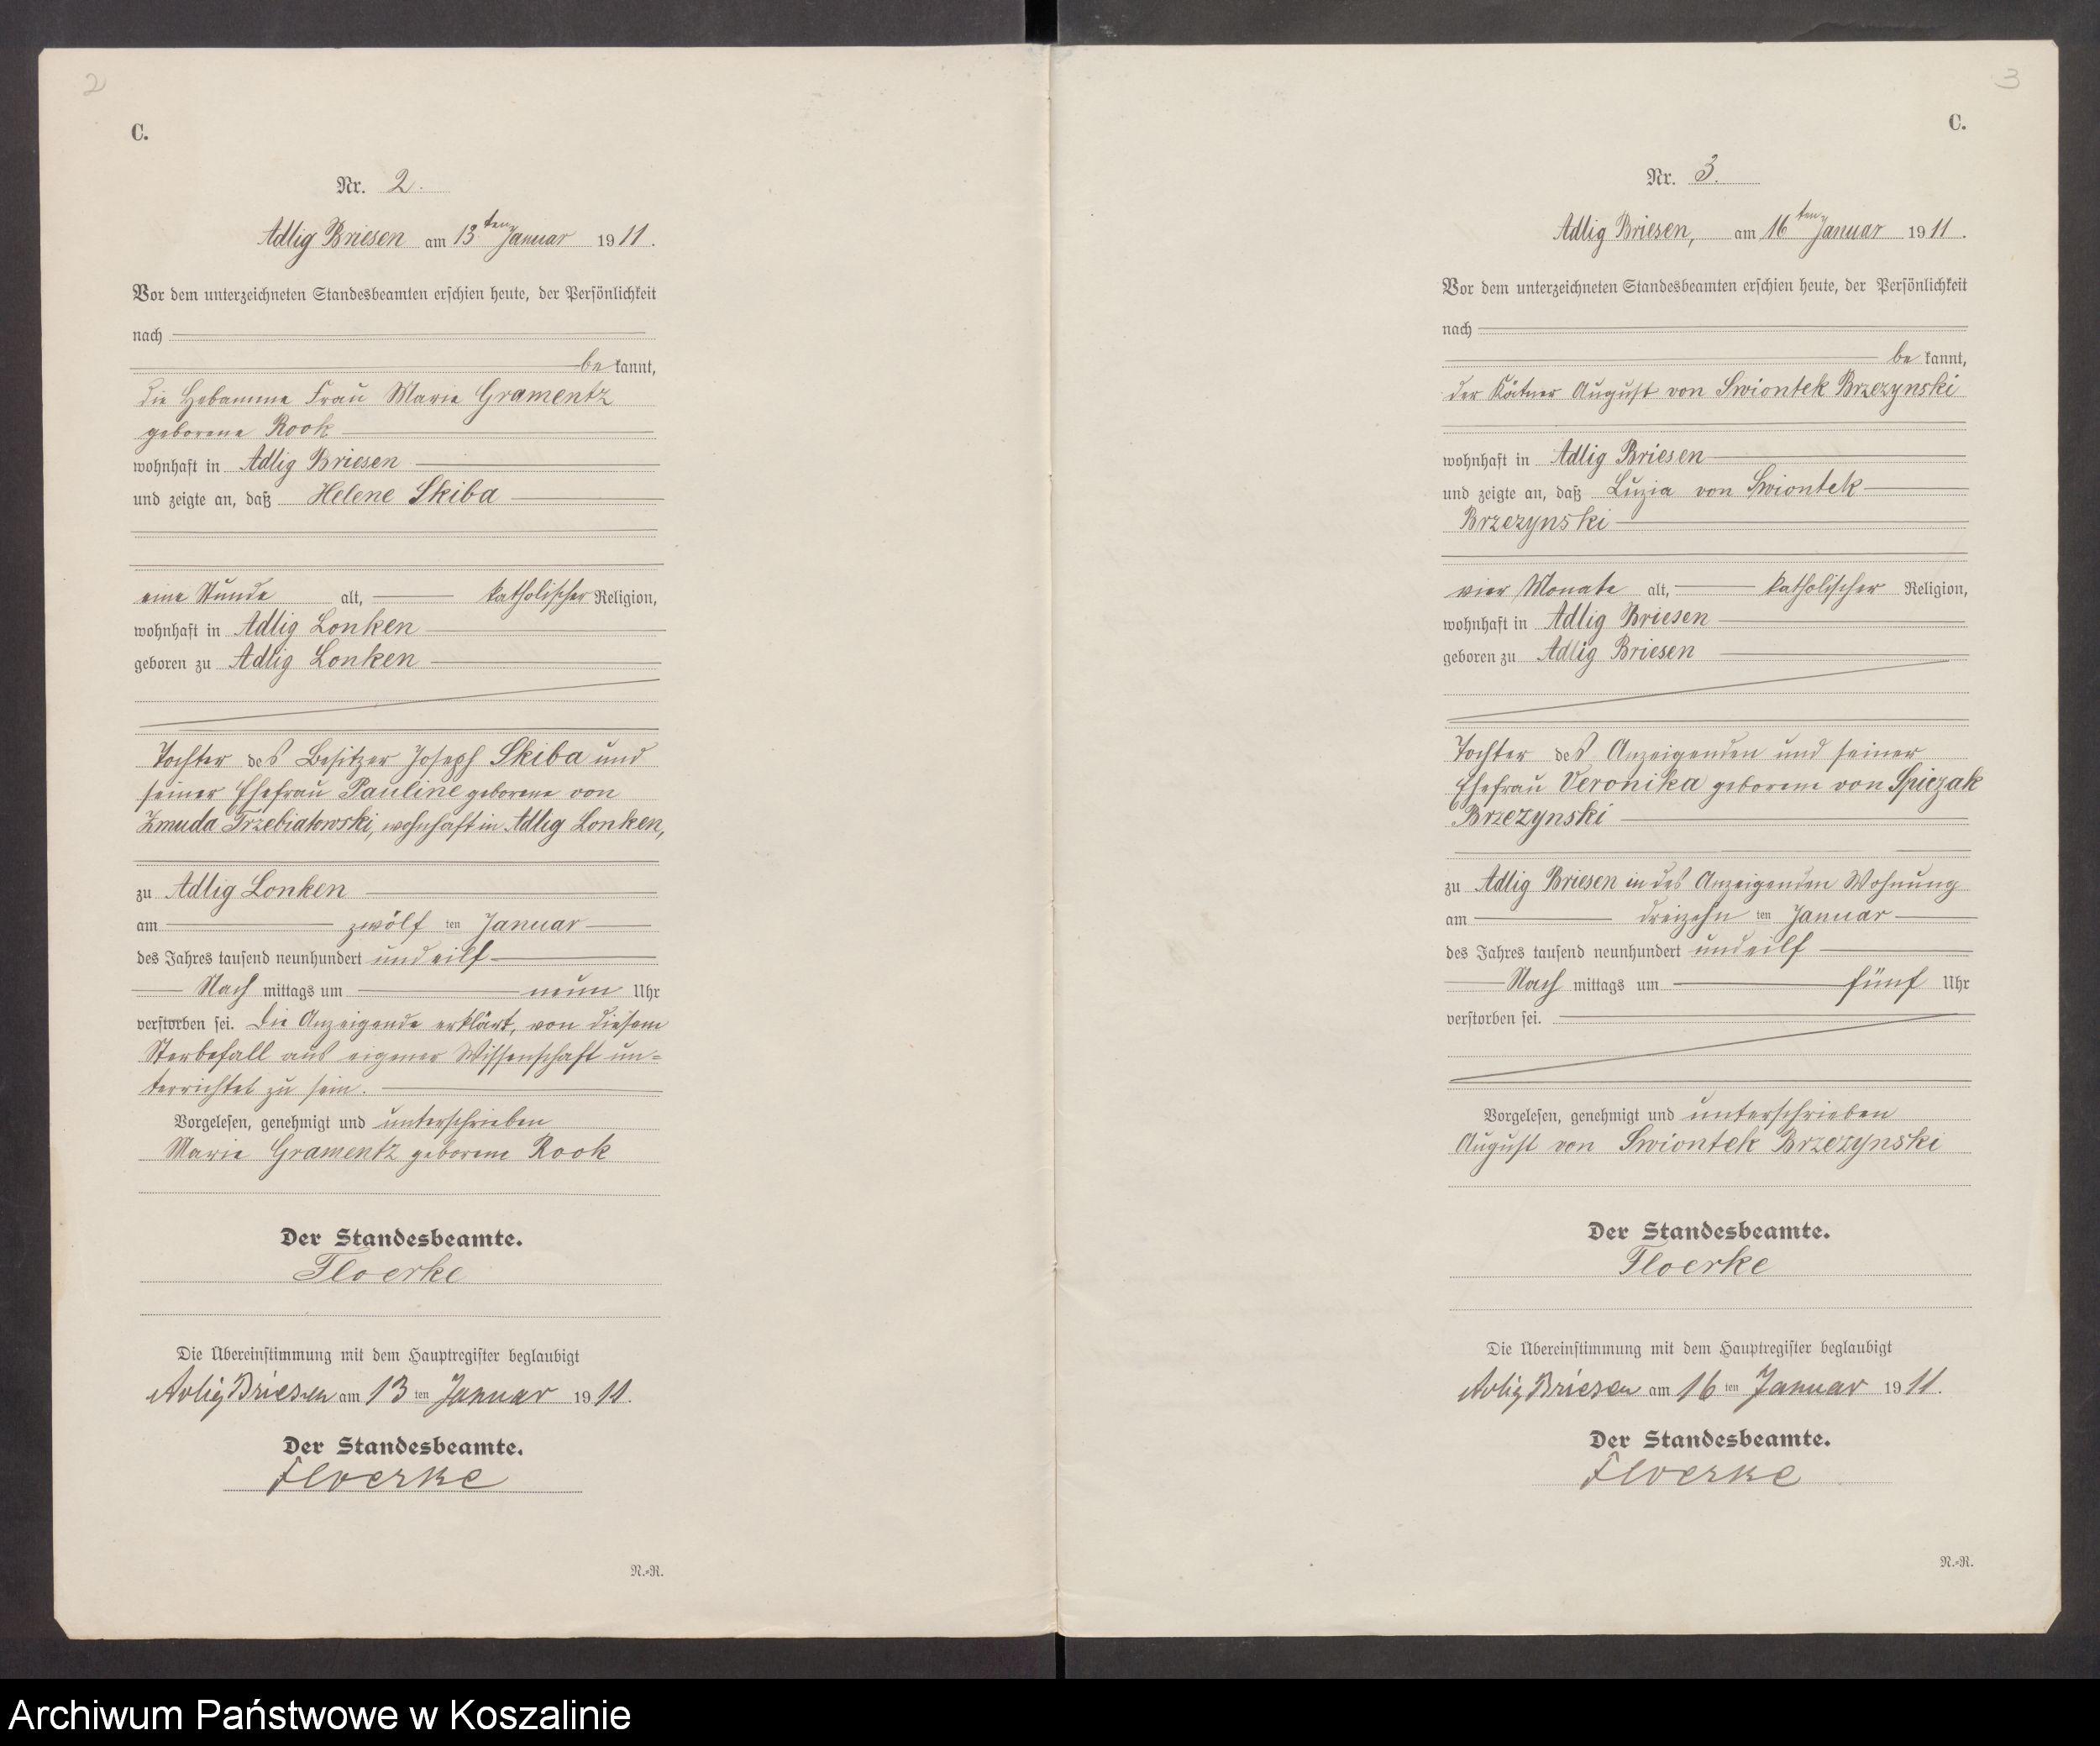 2
C.
Nr. 2.
Adlig Briesen am 13ten Januar 1911.
Vor dem unterzeichneten Standesbeamten erschien heute, der Persönlichkeit
nach
be kannt,
die Hebamme Frau Marie Gramentz
geborene Rook
wohnhaft in Adlig Briesen
und zeigte an, daß Helene Skiba
eine Stunde alt, katholischer Religion,
wohnhaft in Adlig Lonken
geboren zu Adlig Lonken
Tochter des Besitzer Joseph Skiba und
seiner Ehefrau Pauline geborene von
Zmuda Trzebiatowski, wohnhaft in Adlig Lonken,
zu Adlig Lonken
am zwölf ten Januar
des Jahres tausend neunhundert und eilf
Nach mittags um neun Uhr
verstorben sei. Die Anzeigende erklärt, von diesem
Sterbefall aus eigener Wissenschaft un=
terrichtet zu sein.
Vorgelesen, genehmigt und unterschrieben
Marie Gramentz geborene Rook
Der Standesbeamte.
Floerke
Die Übereinstimmung mit dem Hauptregister beglaubigt
Adlig Briesen am 13 ten Januar 1911.
Der Standesbeamte.
Floerke
N.-R.
3
C.
Nr. 3.
Adlig Briesen, am 16ten Januar 1911.
Vor dem unterzeichneten Standesbeamten erschien heute, der Persönlichkeit
nach
be kannt,
der Kätner August von Swiontek Brzezynski
wohnhaft in Adlig Briesen
und zeigte an, daß Luzia von Swiontek
Brzezynski
vier Monate alt, katholischer Religion,
wohnhaft in Adlig Briesen
geboren zu Adlig Briesen
Tochter des Anzeigenden und seiner
Ehefrau Veronika geborene von Spiczak
Brzezynski
zu Adlig Briesen in des Anzeigenden Wohnung
am dreizehn ten Januar
des Jahres tausend neunhundert und eilf
Nach mittags um fünf Uhr
verstorben sei.
Vorgelesen, genehmigt und unterschrieben
August von Swiontek Brzezynski
Der Standesbeamte.
Floerke
Die Übereinstimmung mit dem Hauptregister beglaubigt
Adlig Briesen am 16 ten Januar 1911.
Der Standesbeamte.
Floerke
N.-R.
Archiwum Państwowe w Koszalinie